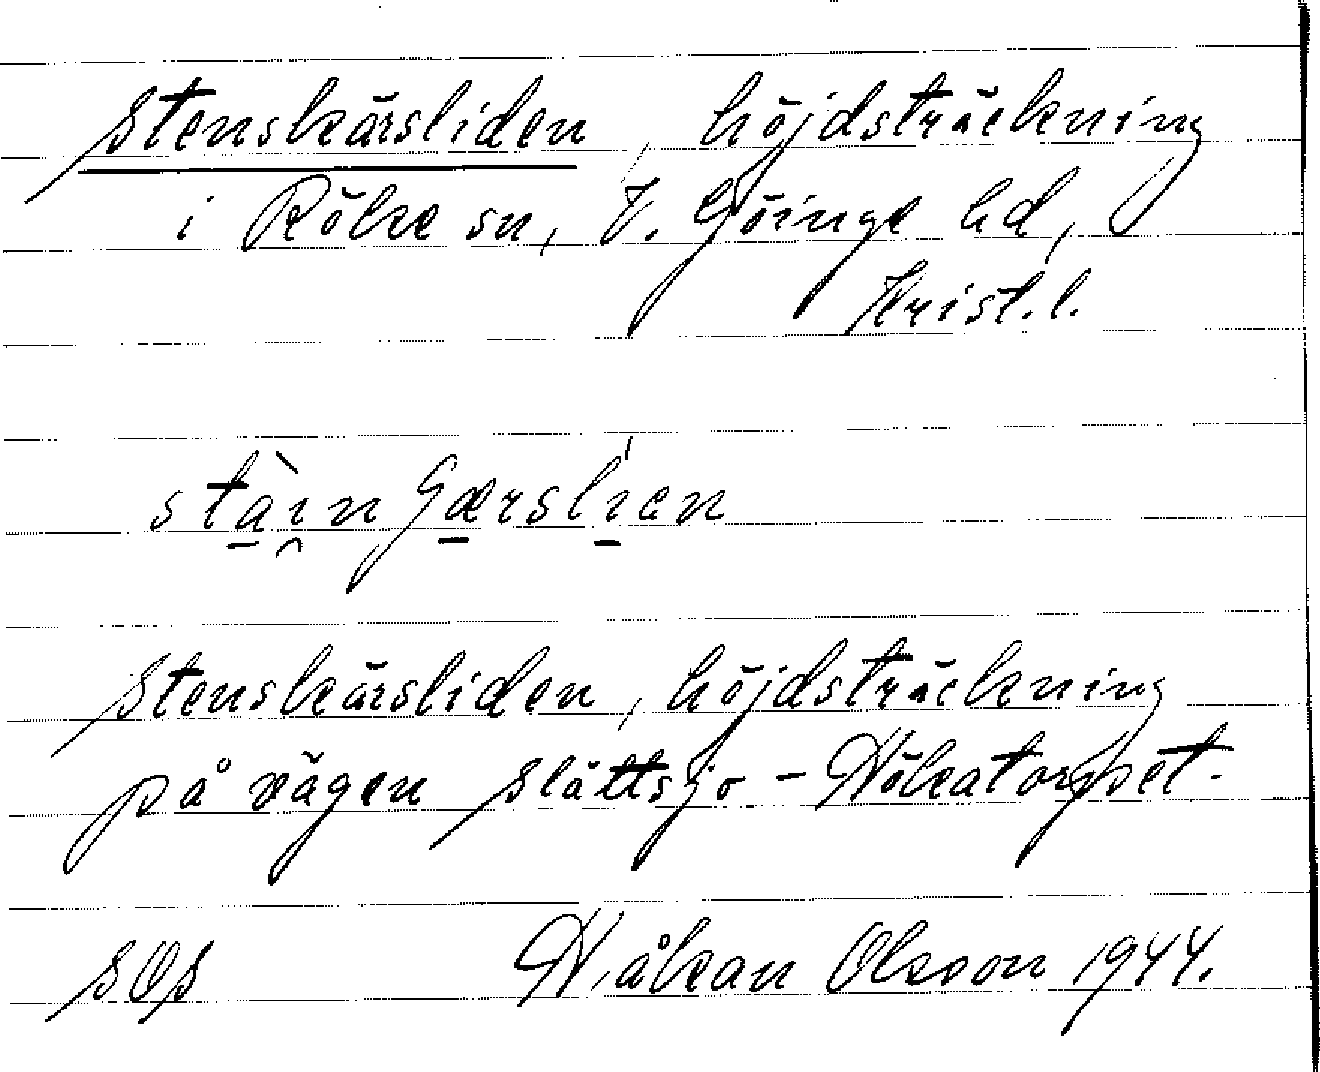 Stenskärsliden, höjdsträckning
i Röke sn, V. Göinge hd,
Krist. l.
stàin gærslíen
Stenskärsliden, höjdsträckning
på vägen Slättsjö - Hökatorpet.
SOS Håkan Olsson 1944.